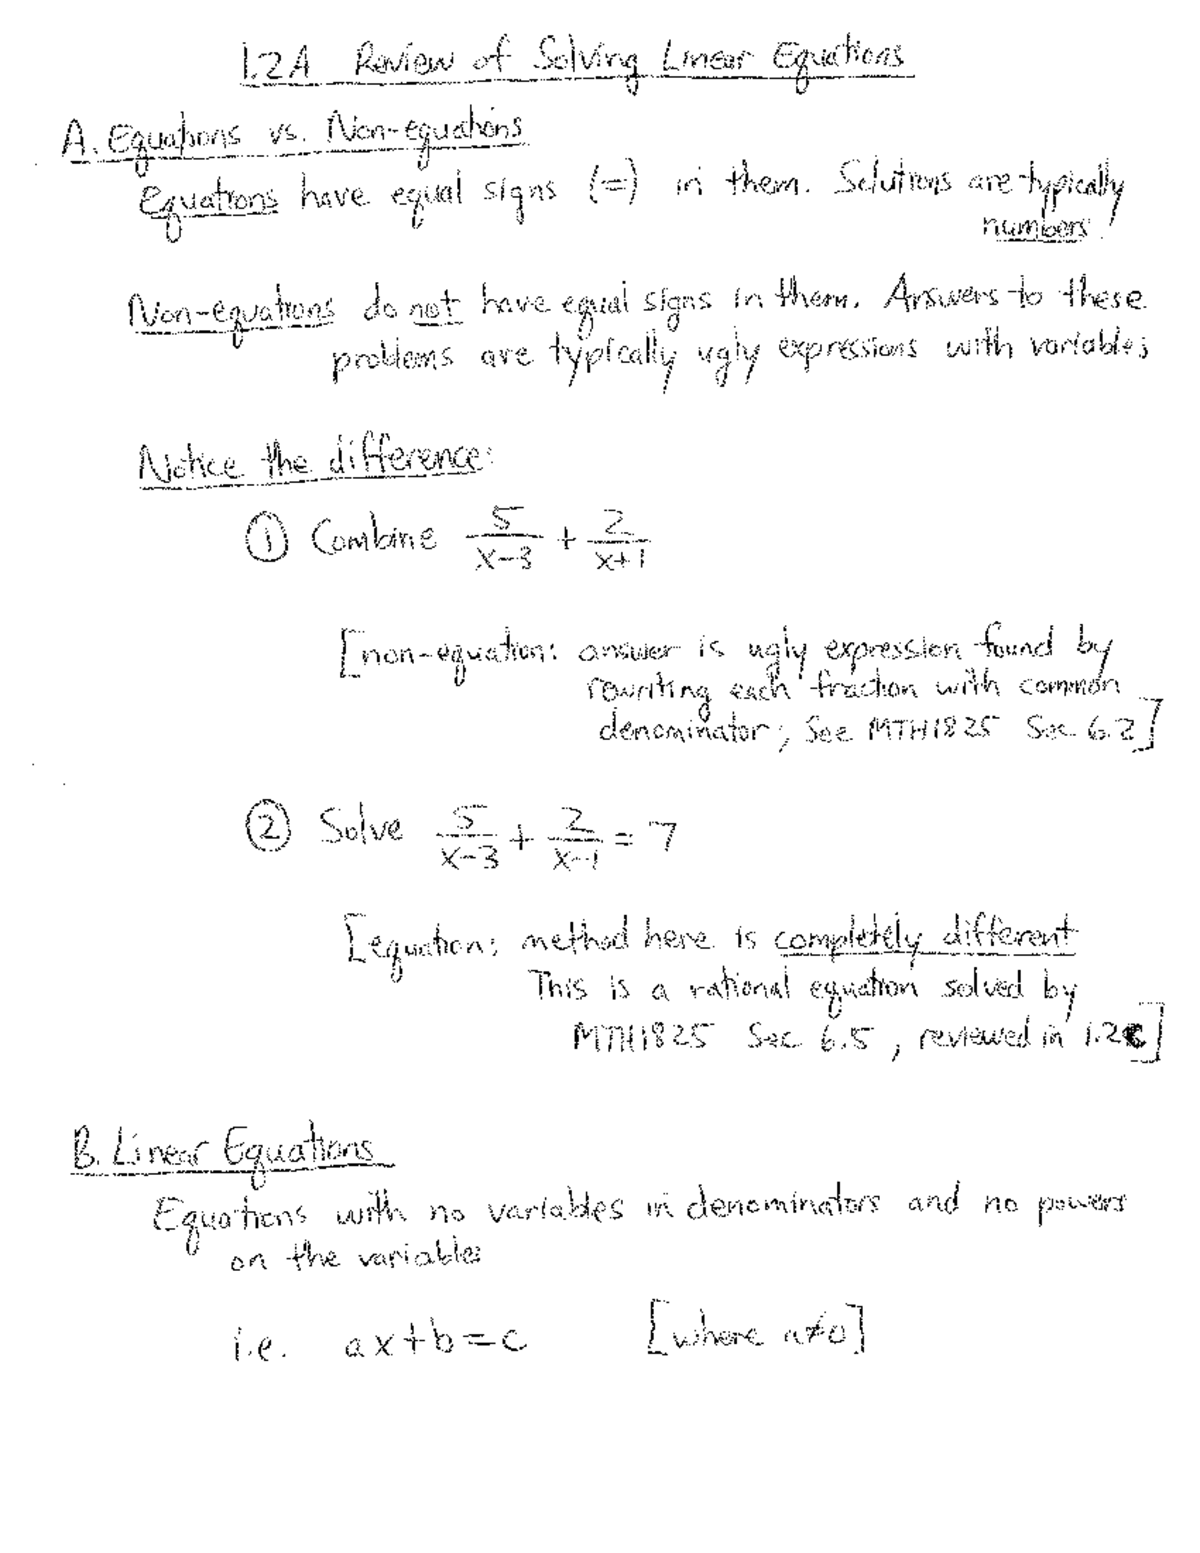 1.2A Review of Solving Linear Equations
A. Equations vs. Non-equations
Equations have equal signs (=) in them. Solutions are typically
numbers.
Non-equations do not have equal signs in them. Answers to these
problems are typically ugly expressions with variables
Notice the difference:
① Combine 5/(x-3) + 2/(x+1)
[non-equation: answer is ugly expression found by
rewriting each fraction with common
denominator; See MTH1825 Sec 6.2]
② Solve 5/(x-3) + 2/(x-1) = 7
[equation: method here is completely different
This is a rational equation solved by
MTH1825 Sec 6.5, reviewed in 1.2C]
B. Linear Equations
Equations with no variables in denominators and no powers
on the variables
i.e. ax+b=c [where a≠0]